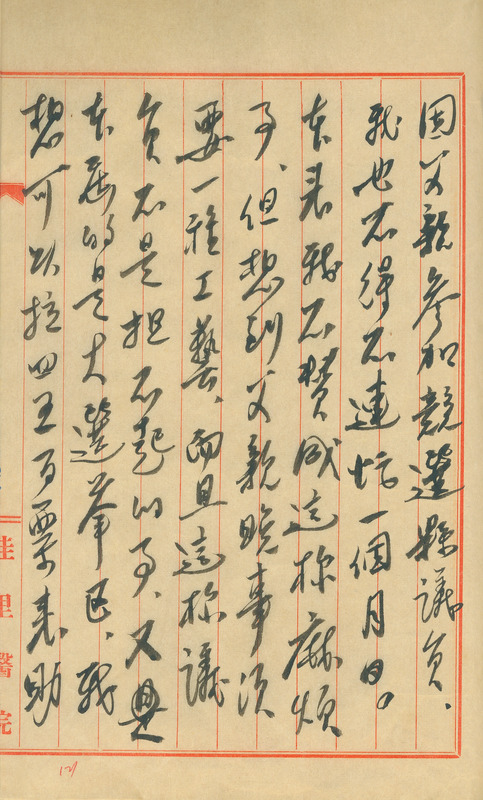 因父親參加競選縣議員、
我也不得不連忙一個月日。
本來我不贊成這種麻煩
事、但想到父親晚事須
要一種工藝、而且這種議
員不是担不起的事、又是
本區的是大選舉區、我
想可以拉四五百票來助
佳里醫院